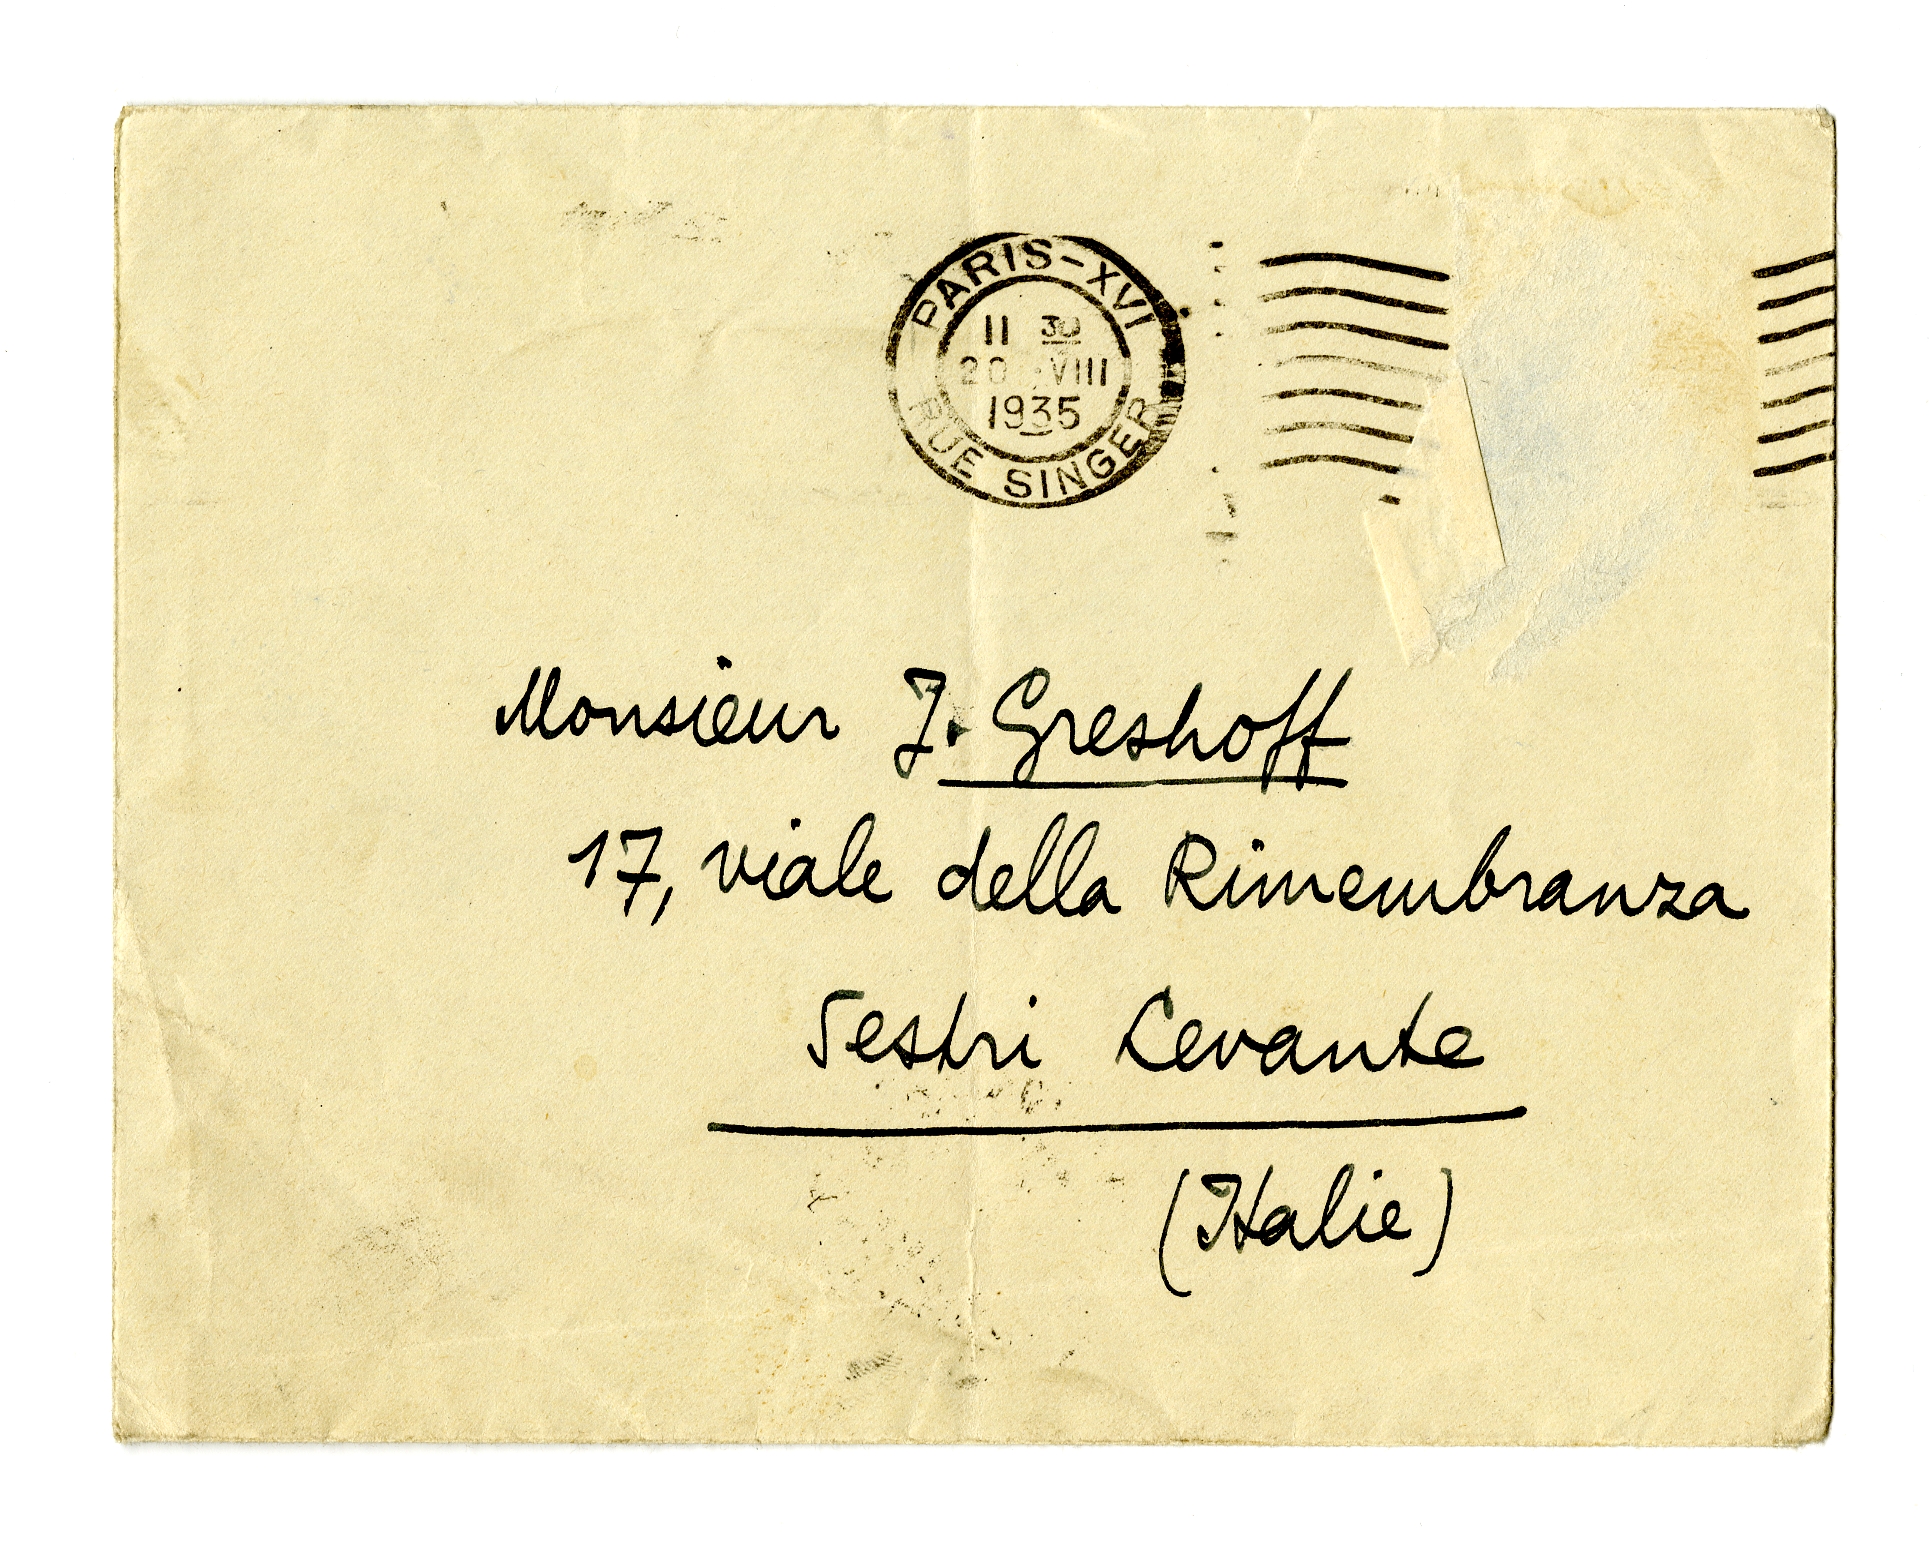 PARIS-XVI
11 30
20 VIII
1935
RUE SINGER
Monsieur J. Greshoff
17, viale della Rimembranza
Sestri Levante
(Italie)